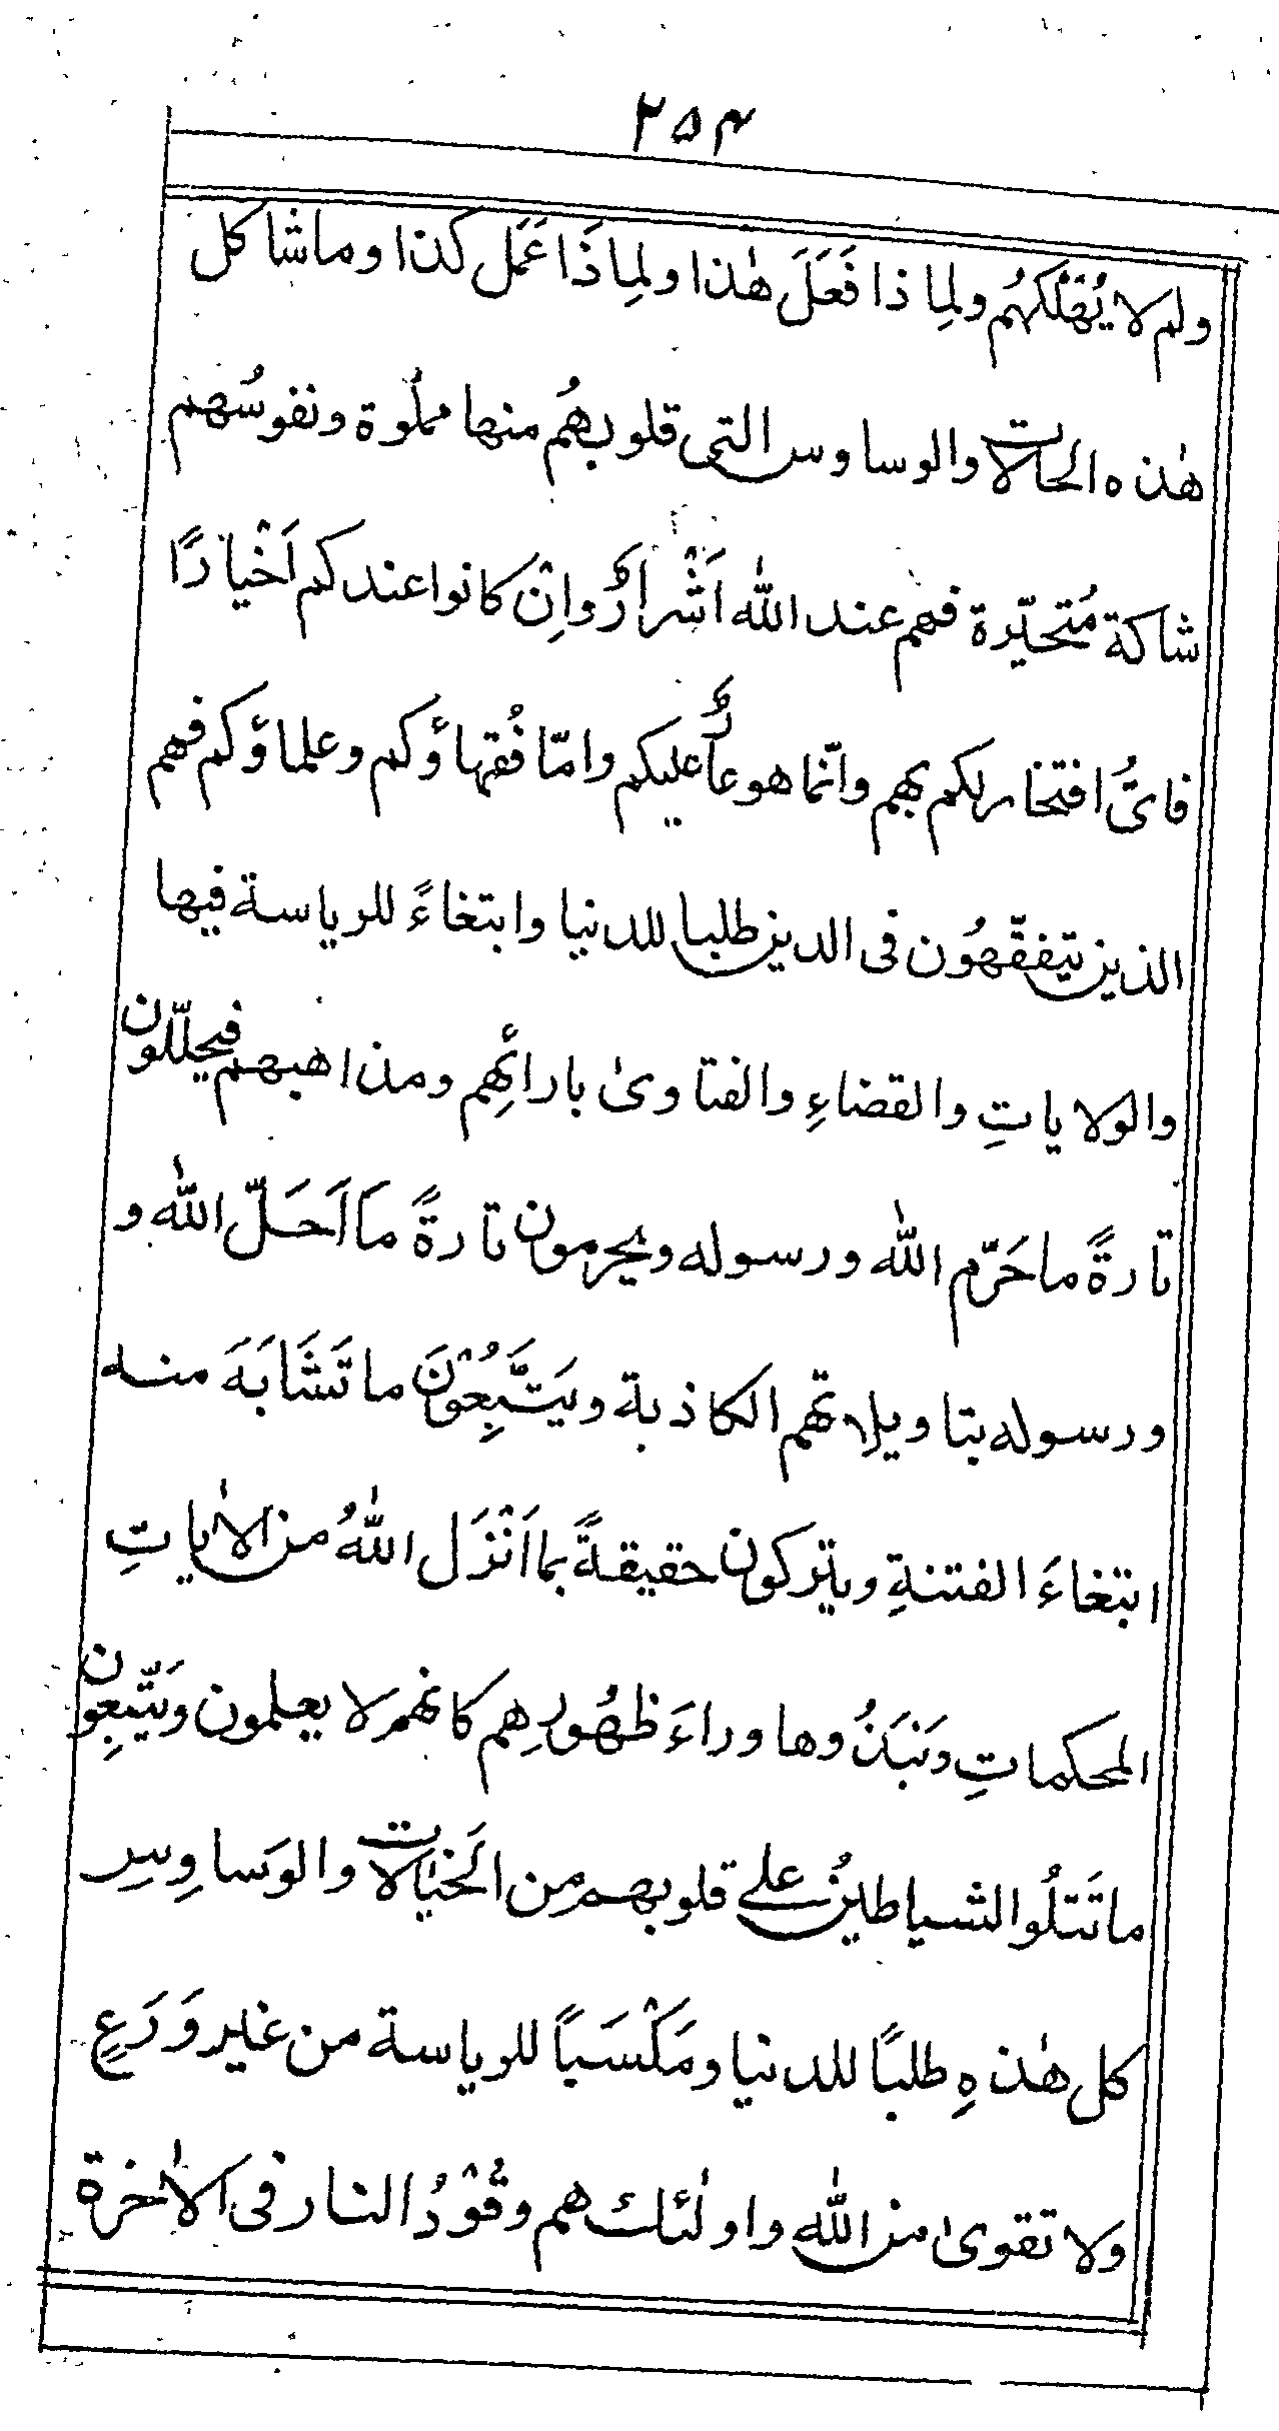 ۲۵۴
ولم لا يُهْلكهُم ولِما ذا فَعَلَ هٰذا ولِماذَا عَمَل كذا وماشاكل
هٰذه الحالات والوساوس التى قلوبهُم منها مملُوة ونفوسُهم
شاكة مُتحيّرة فهم عند الله اَشْرارٌ واِنْ كانوا عندكم اَخْيارًا
فاىُّ افتخار لكم بهم وانّما هو عارٌ عليكم وامّا فُقهاؤكم وعلماؤكم فهم
الذين يتفقّهُون فى الدين طلبا للدنيا وابتغاءً للرياسة فيها
والولاياتِ والقضاءِ والفتاوىٰ بارائهِم ومذاهبهم فيحلّلون
تارةً ما حَرّم الله ورسوله ويحرمون تارةً مَا اَحَلّ الله و
ورسوله بتاويلاتهم الكاذبة ويَتَّبِعُوْنَ ما تَشَابَهَ منه
ابتغاءَ الفتنةِ ويتركون حقيقةً بما اَنْزَل اللهُ من الاٰياتِ
المحكماتِ ونَبَذُوها وراءَ ظهُورِهِم كانهم لا يعلمون ويَتّبِعون
ما تَتلُوا الشياطينُ على قلوبهم من الَخيٰالات والوَساوِسِ
كل هٰذهِ طلبًا للدنيا ومَكْسَبًا للرياسة من غير وَرَعٍ
ولا تقوىٰ من الله واولٰئك هم وقُوْدُ النار فى الاٰخرة